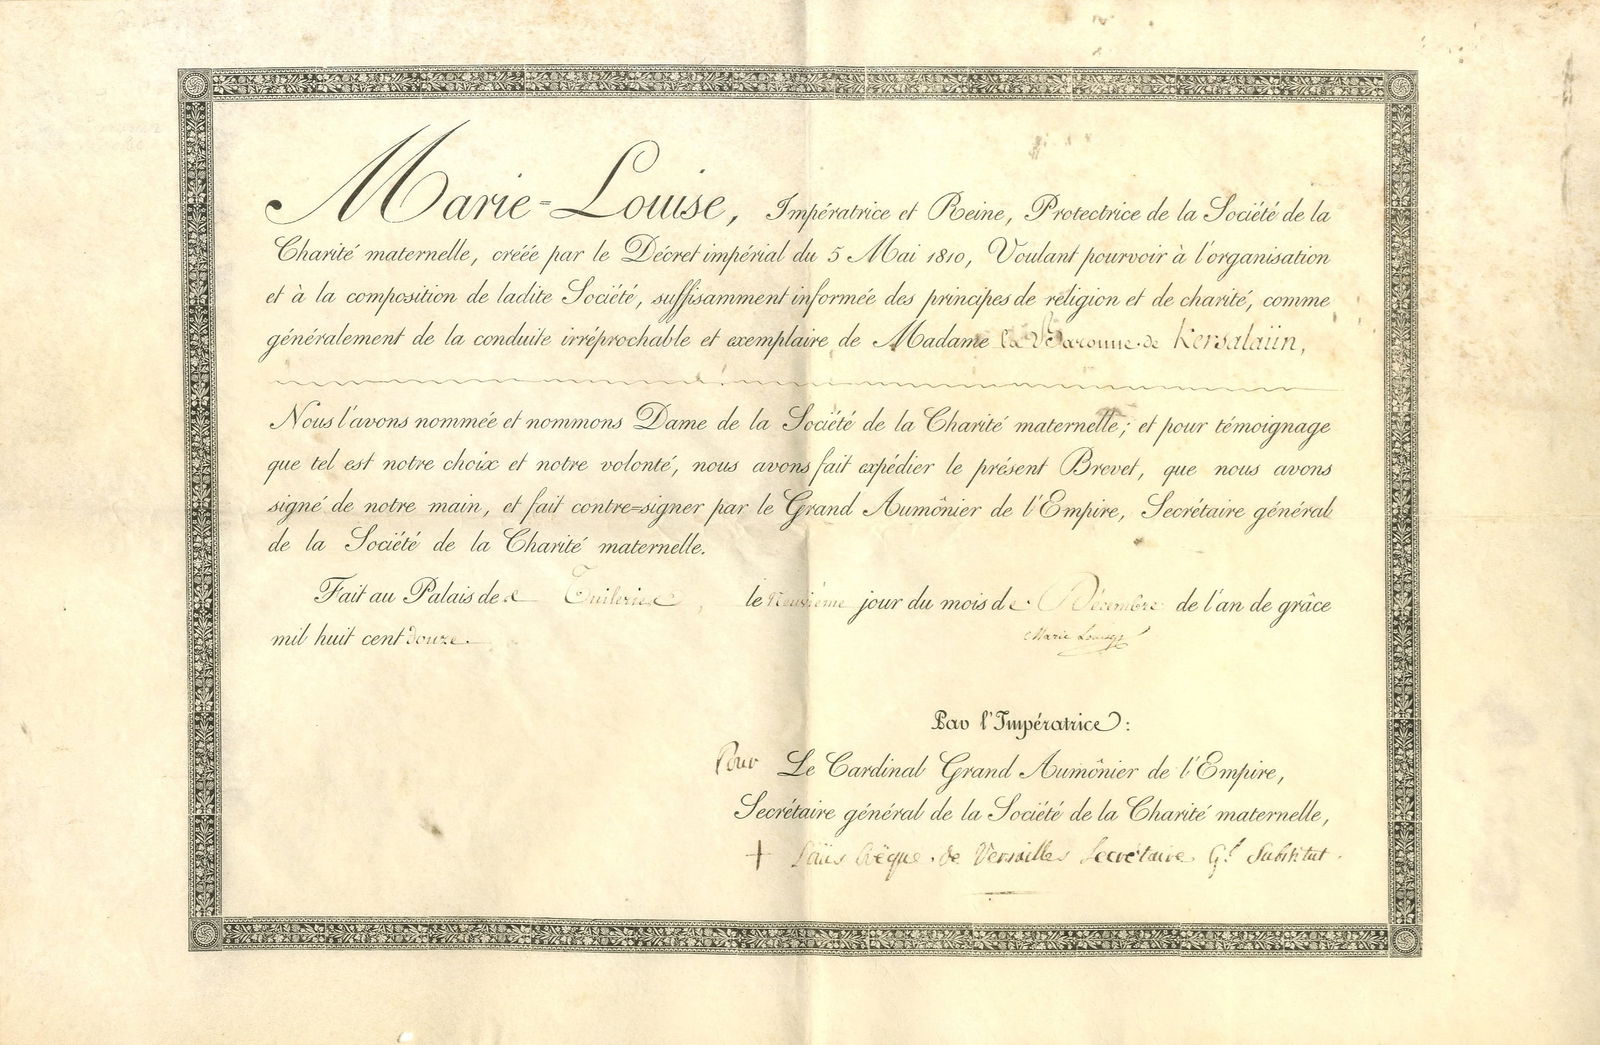 Marie=Louise, Impératrice et Reine, Protectrice de la Société de la
Charité maternelle, créée par le Décret impérial du 5 Mai 1810, Voulant pourvoir à l'organisation
et à la composition de ladite Société, suffisamment informée des principes de réligion et de charité, comme
généralement de la conduite irréprochable et exemplaire de Madame la Baronne de Kersalaün,
Nous l'avons nommée et nommons Dame de la Société de la Charité maternelle; et pour témoignage
que tel est notre choix et notre volonté, nous avons fait expédier le présent Brevet, que nous avons
signé de notre main, et fait contre=signer par le Grand Aumônier de l'Empire, Secrétaire général
de la Société de la Charité maternelle.
Fait au Palais de Tuileries, le neuvième jour du mois de Décembre de l'an de grâce
mil huit cent douze.
Marie Louise
Par l'Impératrice:
Pour Le Cardinal Grand Aumônier de l'Empire,
Secrétaire général de la Société de la Charité maternelle,
+ Louis Evêque de Versailles Secrétaire Gl. Substitut.